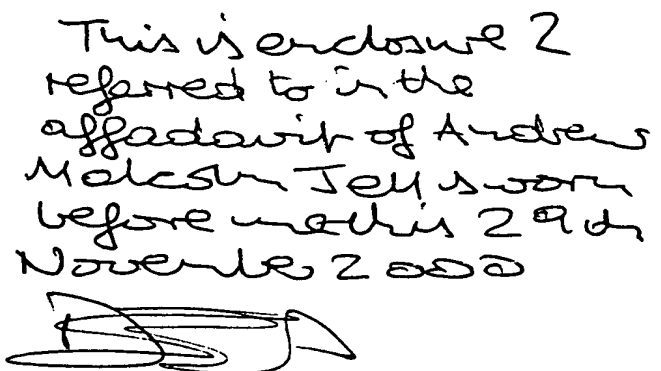 This is enclosure 2
referred to in the
affadavit of Andrew
Malcolm Jell sworn
before me this 29th
November 2000